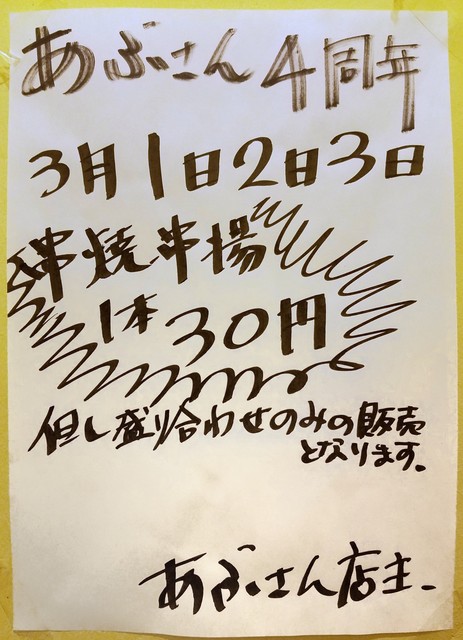 あぶさん4周年
3月1日2日3日
串焼串揚
1本30円
但し盛り合わせのみの販売
となります。
あぶさん店主.